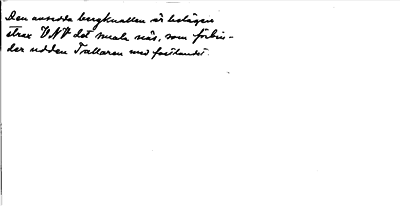 Den avsedda bergknallen är belägen
strax VNV det smala näs, som förbin-
der udden Trallaren med fastlandet.